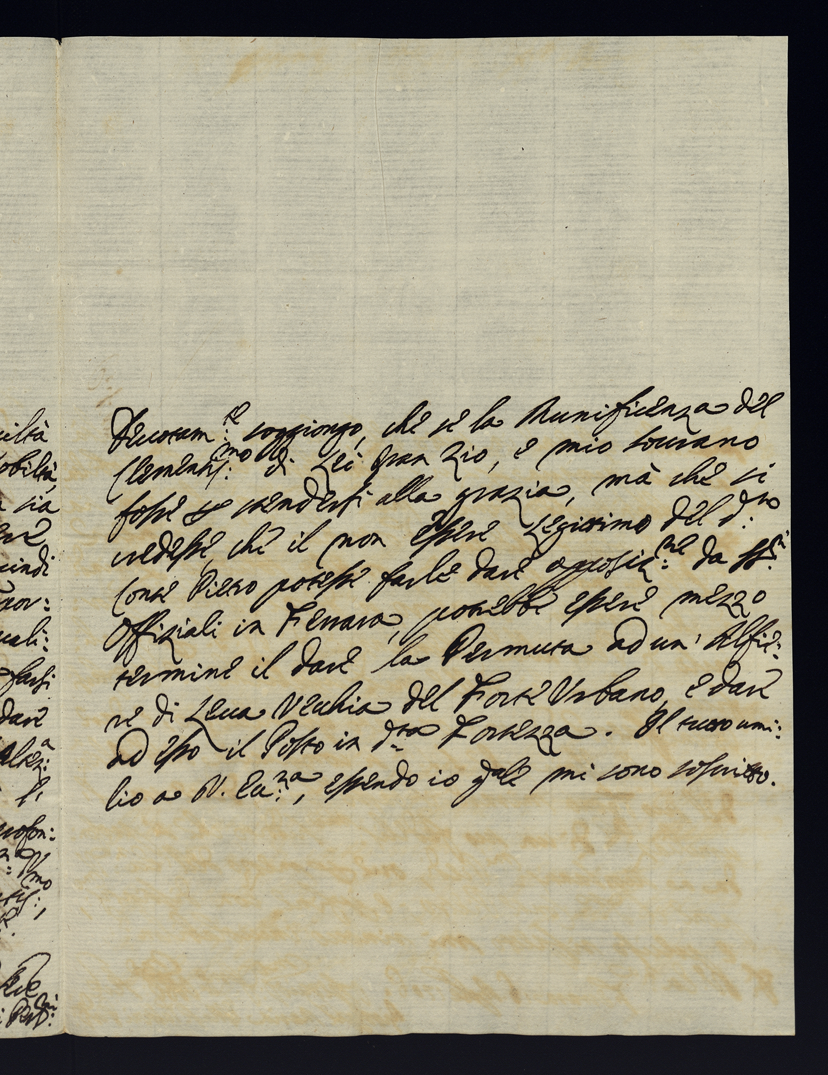 Deuotam:te soggiongo, che se la Munificenza del
Clementis:mo di Lei gran Zio, e mio sourano
fosse p stendersi alla grazia, mà che si
credesse, che il non essere Legitimo del d:tto
Conte Pietro potesse farle dare opposiz:ne da SS:ri
Offiziali in Ferrara, potrebbe essere mezzo
termine il dare la Permuta ad un' Alfie:
re di Leua Vecchia del Forte Vrbano, e dare
ad esso il Posto in d:ta Fortezza. Il tutto umi:
lio a V. Em:za, essendo io qale mi sono soscritto.